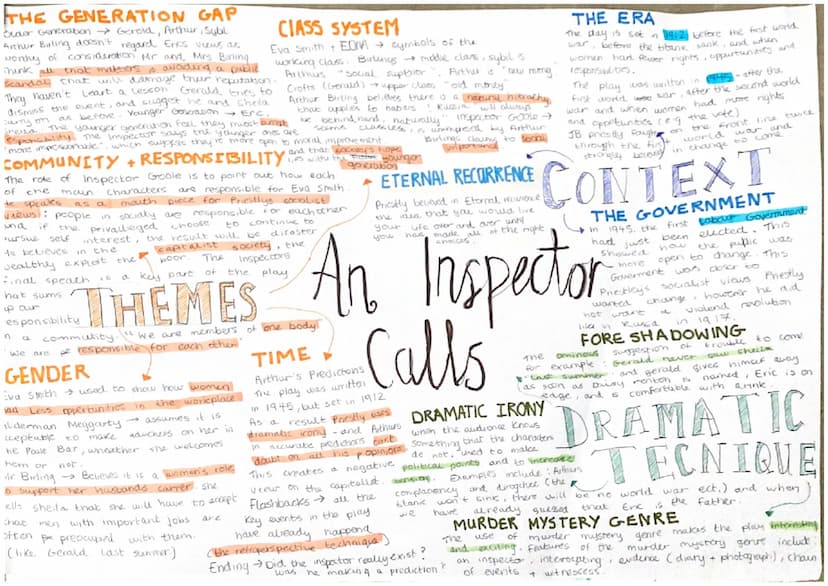 THE GENERATION GAP
Older Generation → Gerald, Arthur, Sybil
Arthur Birling doesn't regard Eric's views as
worthy of consideration Mr and Mrs Birling
think all that matters is avoiding a public
scandal that will damage their reputation.
They haven't learnt a lesson Gerald, tries to
dismiss the event, and suggest he and Sheila
carry on as before. Younger Generation → Eric,
Sheila the younger generation feel they must accept
responsibility. The inspector says the younger ones are
"more impressionable", which suggests they're more open to moral improvement
and that society's hope
lies with the younger
generation
COMMUNITY + RESPONSIBILITY
The role of Inspector Goole is to point out how each
of the main characters are responsible for Eva Smith.
He speaks as a mouth piece for Priestlys socialist
views: people in society are responsible for eachother
and if the privalleged choose to continue to
pursue self interest, the result will be disaster
He believes in the capitalist society, the
wealthy exploit the poor. The inspectors
final speach is a key part of the play
that sums
up our
responsibility
in a community "we are members of one body.
We are responsible for each other"
THEMES
GENDER
Eva Smith → used to show how women
had less oppertunities in the workplace
Alderman Meggarty → assumes it is
acceptable to make advances on her in
the Palace Bar, wheather she welcomes
them or not.
Mr Birling → Believes it is a women's role
to support her husbands carrer she
tells sheila that she will have to accept
that men with important jobs are
often preocupied with them.
(like Gerald last summer)
CLASS SYSTEM
Eva Smith + EDNA → symbols of the
working class. Birlings → middle class, sybil is
Arthurs "social supieror". Arthur is "new money"
Crofts (Gerald) → upper class "old money"
Arthur Birling belides there is a natural hierarchy
that applies to nations "Russia will always
be behind hand, naturally" Inspector Goole →
seems classless, is unimpressed by Arthur
Birlings claims to social
importance
ETERNAL RECURRENCE
Priestly believed in Eternal recurrence
the idea that you would live
your life over and over until
you have made all of the right
choices.
An Inspector
Calls
TIME
Arthur's Predictions
The play was written
in 1945, but set in 1912
As a result Priestly uses
dramatic irony - and Arthurs
in acurate predicions cast
doubt on all his opinions
This creates a negative
view on the capitalist.
Flashbacks → all the
key events in the play
have already happend
(the retrospective technique)
Ending → Did the inspector really exist?
was he making a prediction?
THE ERA
The play is set in 1912 before the first world
war, before the titanic sank, and when
women had fewer rights, oppurtunities and
responsibilities.
The play was written in 1945, after the
first world war, after the second world
war and when women had more rights
and oppertunities (e.g the vote)
JB priestly fought on the front line twice
through the first world war and
strongly belived in change to come
CONTEXT
THE GOVERNMENT
In 1945, the first Labour Government
had just been elected. This
showed how the public was
more open to change. This
Government was closer to
Priestley's socialist views Priestly
wanted change, however he did
not want a violent revolution
like in Russia in 1917.
FORE SHADOWING
The ominous suggestion of trouble to come
for example: Gerald never saw sheila
last summer and gerald gives himself away
as soon as Daisy renton is named, Eric is on
edge, and is comfortable with a drink.
DRAMATIC
TECNIQUE
DRAMATIC IRONY
When the audience knows
something that the characters
do not, used to make
political points and to increase
tension. Examples include: Arthurs
complacency and speeches (the
titanic won't sink, there will be no world war ect.) and when
we have already guessed that Eric is the father.
MURDER MYSTERY GENRE
The use of murder mystery genre makes the play interesting
and exciting. features of the murder mystery genre include
an inspector, intercepting, evidence (diary + photograph), chain
of events + witnesses.